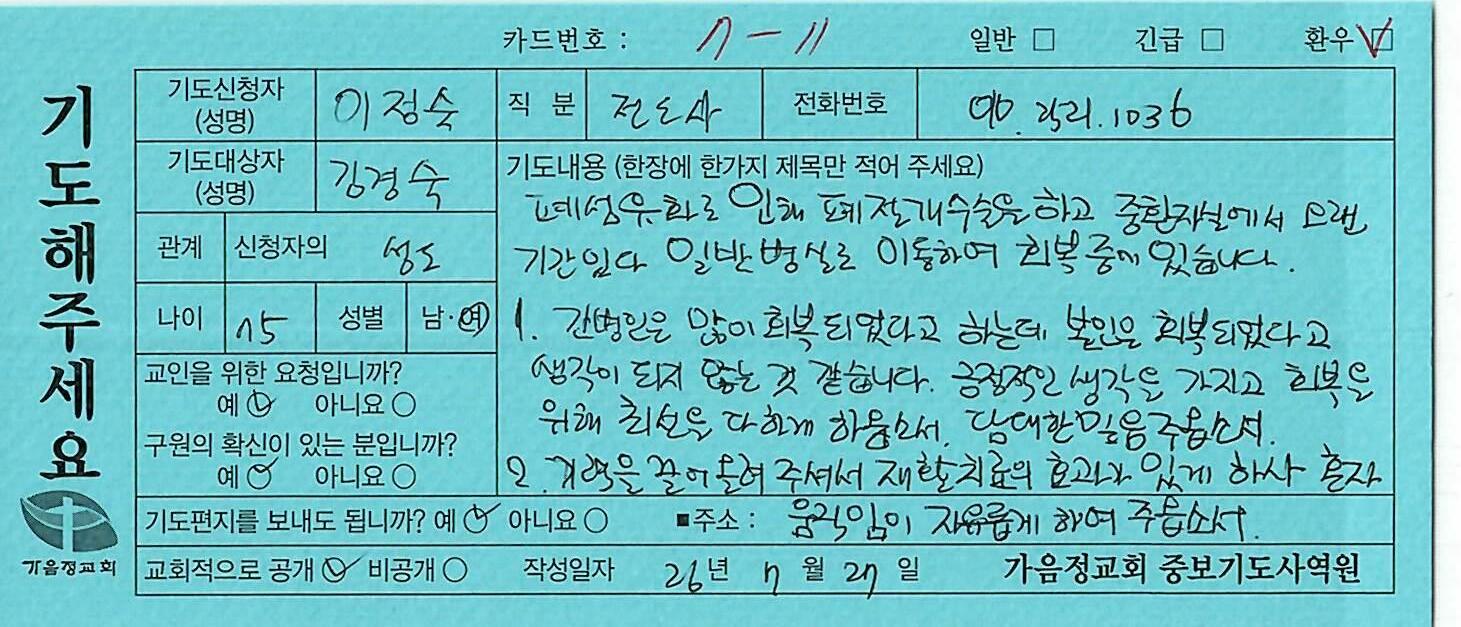 카드번호 : 7-11 일반 □ 긴급 □ 환우 ☑
기도해주세요
기도신청자 (성명) 이정숙 직 분 전도사 전화번호
기도대상자 (성명) 김경숙
관계 신청자의 성도
나이 75 성별 남·여
교인을 위한 요청입니까?
예 ☑ 아니요 ○
구원의 확신이 있는 분입니까?
예 ☑ 아니요 ○
기도내용 (한장에 한가지 제목만 적어 주세요)
폐섬유화로 인해 폐절개수술을 하고 중환자실에서 오랜
기간있다 일반병실로 이동하여 회복중에 있습니다.
1. 간병인은 많이 회복되었다고 하는데 본인은 회복되었다고
생각이 되지 않는 것 같습니다. 긍정적인 생각을 가지고 회복을
위해 최선을 다하게 하옵소서. 담대한 믿음주옵소서.
2. 기력을 끌어올려 주셔서 재활치료의 효과가 있게 하사 혼자
움직임이 자유롭게 하여 주옵소서.
기도편지를 보내도 됩니까? 예 ☑ 아니요 ○ ■주소 :
교회적으로 공개 ☑ 비공개 ○ 작성일자 26년 7월 27일 가음정교회 중보기도사역원
가음정교회